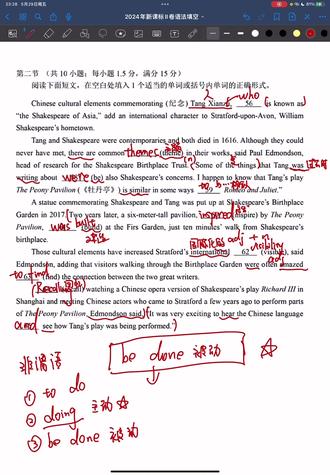 23:28 5月29日周三
2024年新课标II卷语法填空
第二节 (共10小题; 每小题1.5分, 满分15分)
阅读下面短文, 在空白处填入1个适当的单词或括号内单词的正确形式。
who
Chinese cultural elements commemorating (纪念) Tang Xianzu, 56 is known as
“the Shakespeare of Asia,” add an international character to Stratford-upon-Avon, William
Shakespeare's hometown.
Tang and Shakespeare were contemporaries and both died in 1616. Although they could
themes
never have met, there are common (theme) in their works, said Paul Edmondson,
head of research for the Shakespeare Birthplace Trust. “Some of the things that Tang was
writing about were (be) also Shakespeare's concerns. I happen to know that Tang's play
The Peony Pavilion, (《牡丹亭》) is similar in some ways to Romeo and Juliet.”
A statue commemorating Shakespeare and Tang was put up at Shakespeare's Birthplace
Garden in 2017. Two years later, a six-meter-tall pavilion, inspired (inspire) by The Peony
Pavilion, was built (build) at the Firs Garden, just ten minutes' walk from Shakespeare's
birthplace.
Those cultural elements have increased Stratford's international 62 (visible), said
Edmondson, adding that visitors walking through the Birthplace Garden were often amazed
to find (find) the connection between the two great writers.
Recalling watching a Chinese opera version of Shakespeare's play Richard III in
Shanghai and meeting Chinese actors who came to Stratford a few years ago to perform parts
of The Peony Pavilion, Edmondson said, “It was very exciting to hear the Chinese language
and see how Tang's play was being performed.”
be done 被动
非谓语
① to do
② doing 主动
③ be done 被动